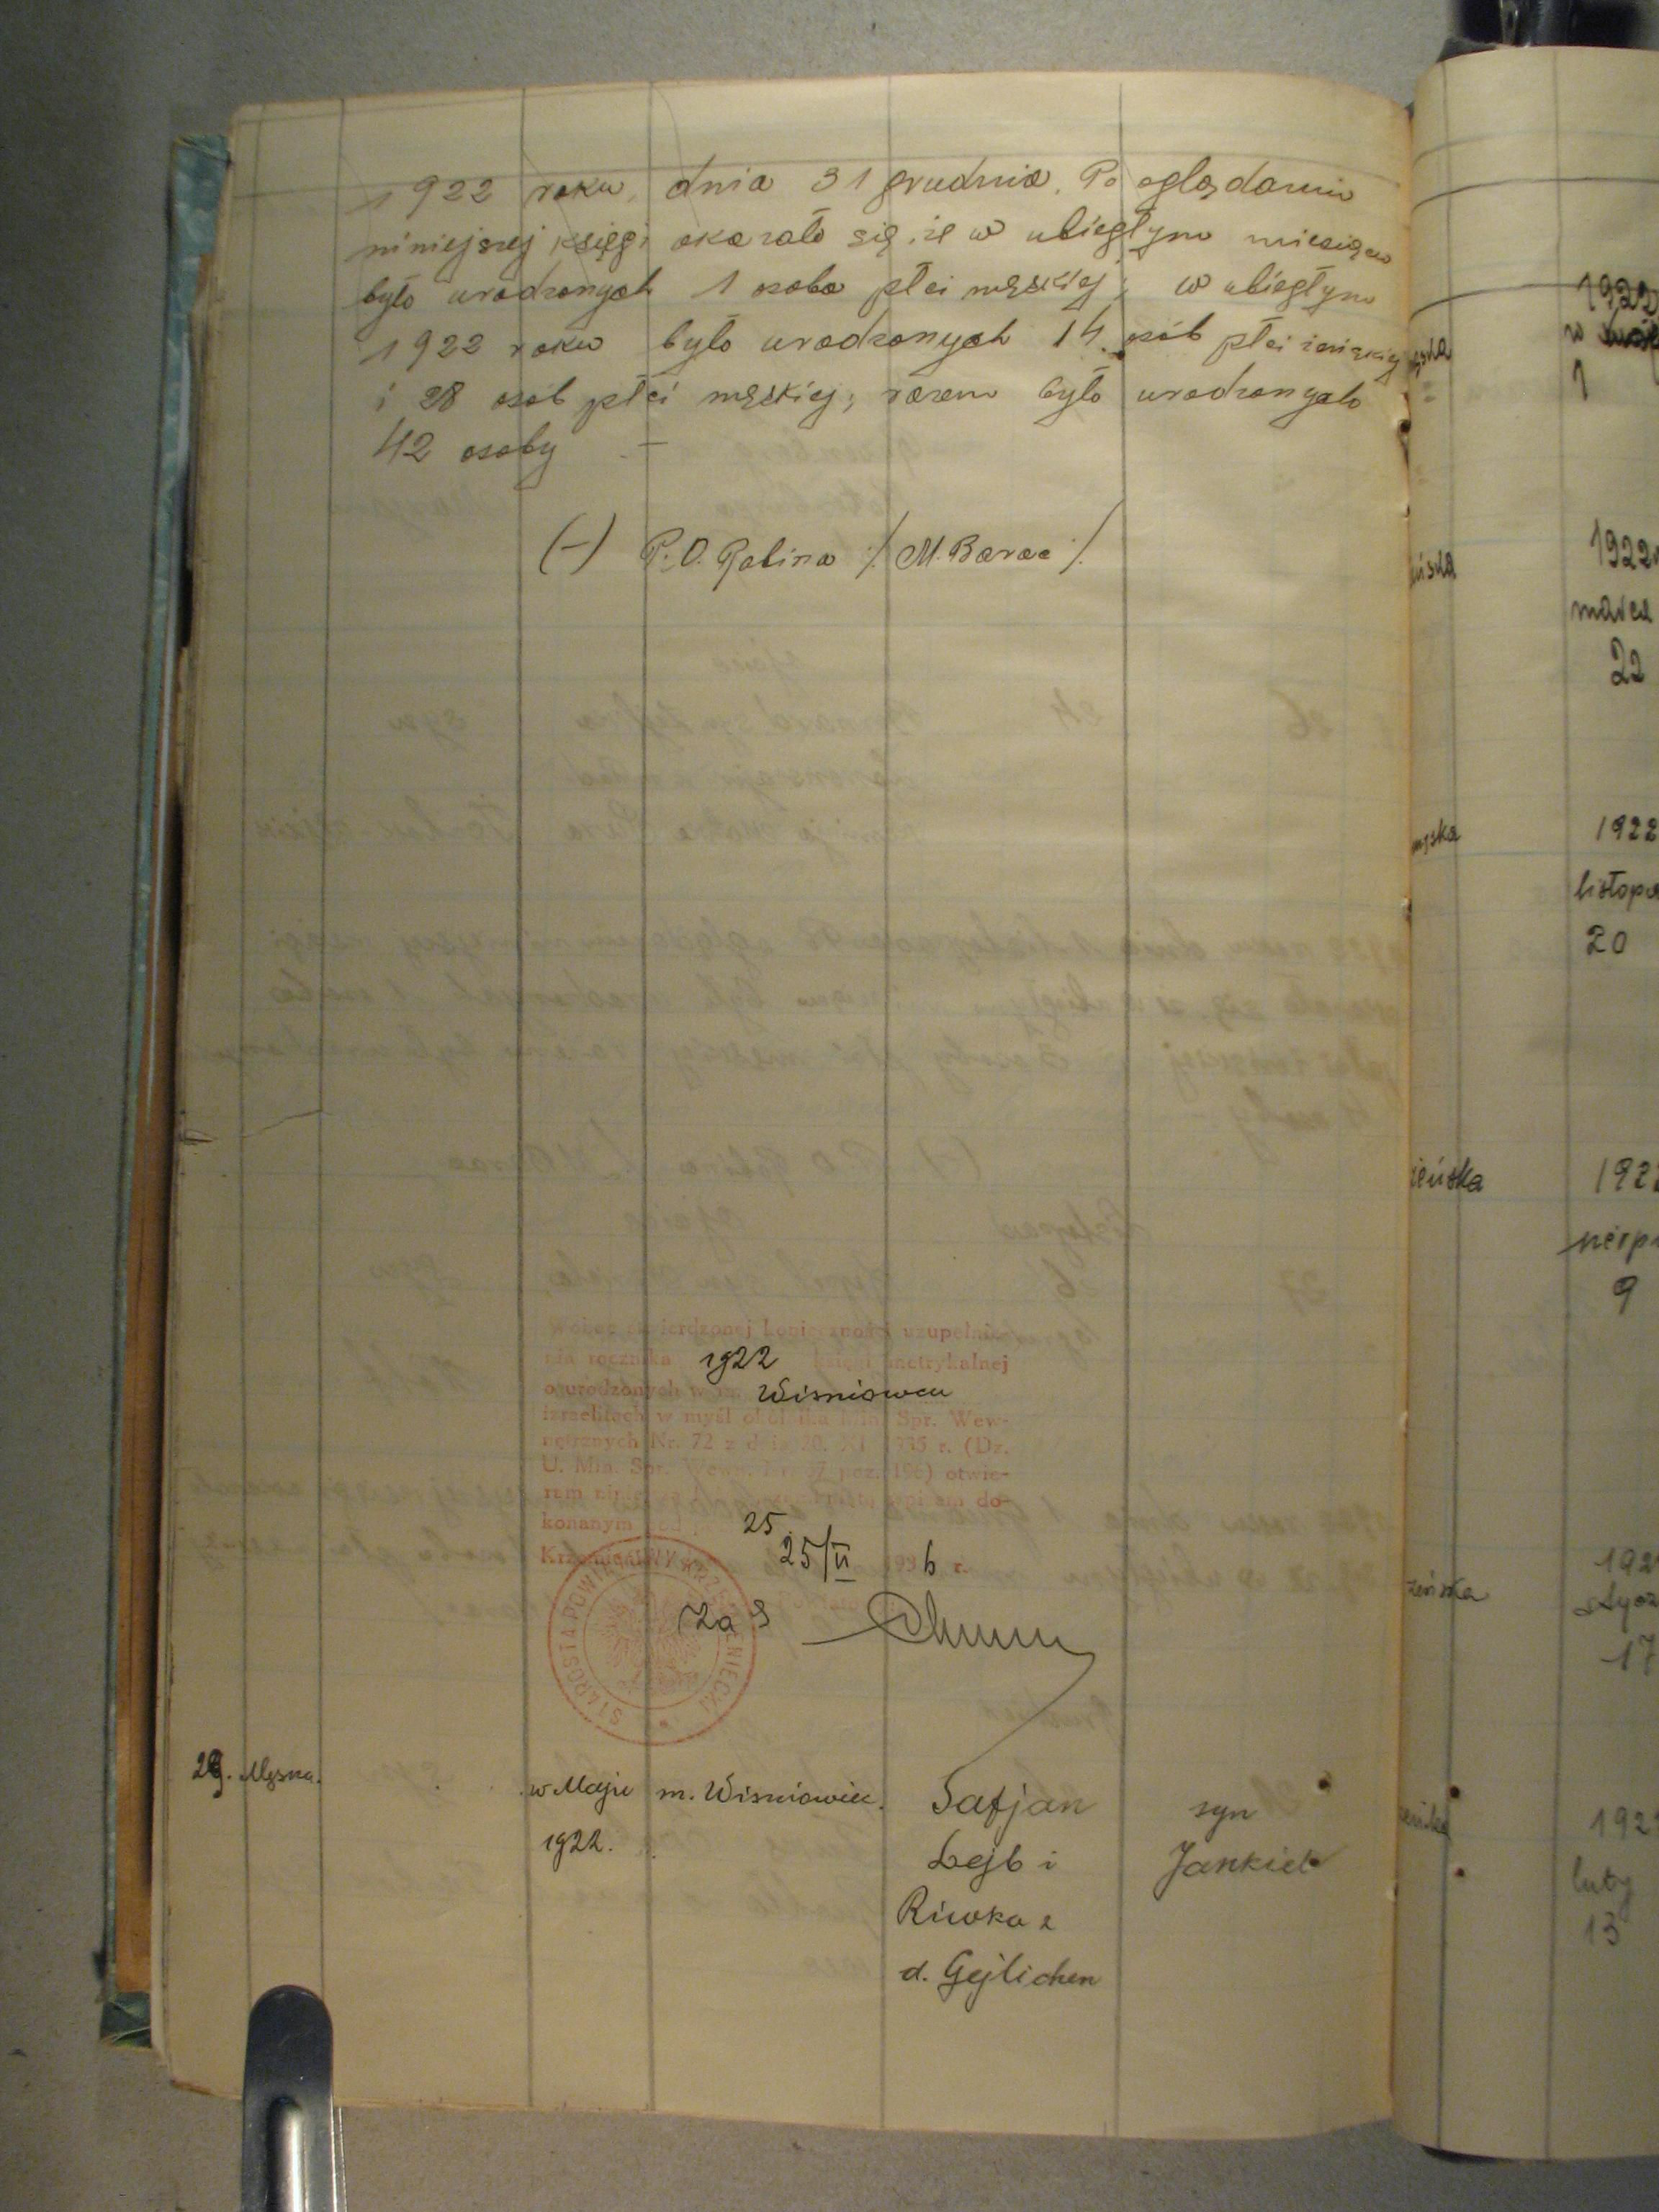 1922 roku, dnia 31 grudnia. Po oglądaniu
niniejszej księgi okazało się, że w ubiegłym miesiącu
było urodzonych 1 osoba płci męskiej; w ubiegłym
1922 roku było urodzonych 14 osób płci żeńskiej
i 28 osób płci męskiej; razem było urodzonych
42 osoby –
(-) P.O. Rabina /. M. Barac ./
uzupełnie-
nia rocznika 1922 księgi metrykalnej
o urodzonych w m. Wisniowcu
izraelitach w myśl okólnika Min. Spr. Wew-
nętrznych Nr. 72 z dnia 20. XI 1935 r. (Dz.
U. Min. Spr. Wewn. poz. 196) otwie-
ram do-
konanym 25
25/II 1936 r.
Za S
STAROSTA POWIATOWY KRZEMIENIECKI
29. Męska. w Maju m. Wisniowiec. Safjan syn
1922. Lejb i Jankiel
Riwka z
d. Gejlichen
ęska 1922
w
1
ńska 1922
marca
22
męska 1922
listopa
20
żeńska 192
sierp
9
żeńska 192
stycz
17
żeńska 192
luty
13